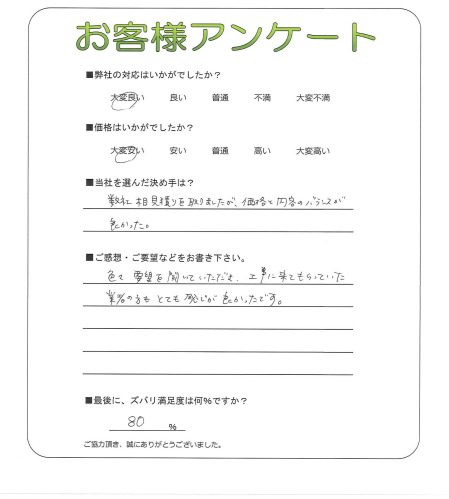 お客様アンケート
■弊社の対応はいかがでしたか？
大変良い 良い 普通 不満 大変不満
■価格はいかがでしたか？
大変安い 安い 普通 高い 大変高い
■当社を選んだ決め手は？
数社相見積りを取りましたが、価格と内容のバランスが
良かった。
■ご感想・ご要望などをお書き下さい。
色々要望を聞いていただき、工事に来てもらっていた
業者の方もとても感じが良かったです。
■最後に、ズバリ満足度は何%ですか？
80 %
ご協力頂き、誠にありがとうございました。